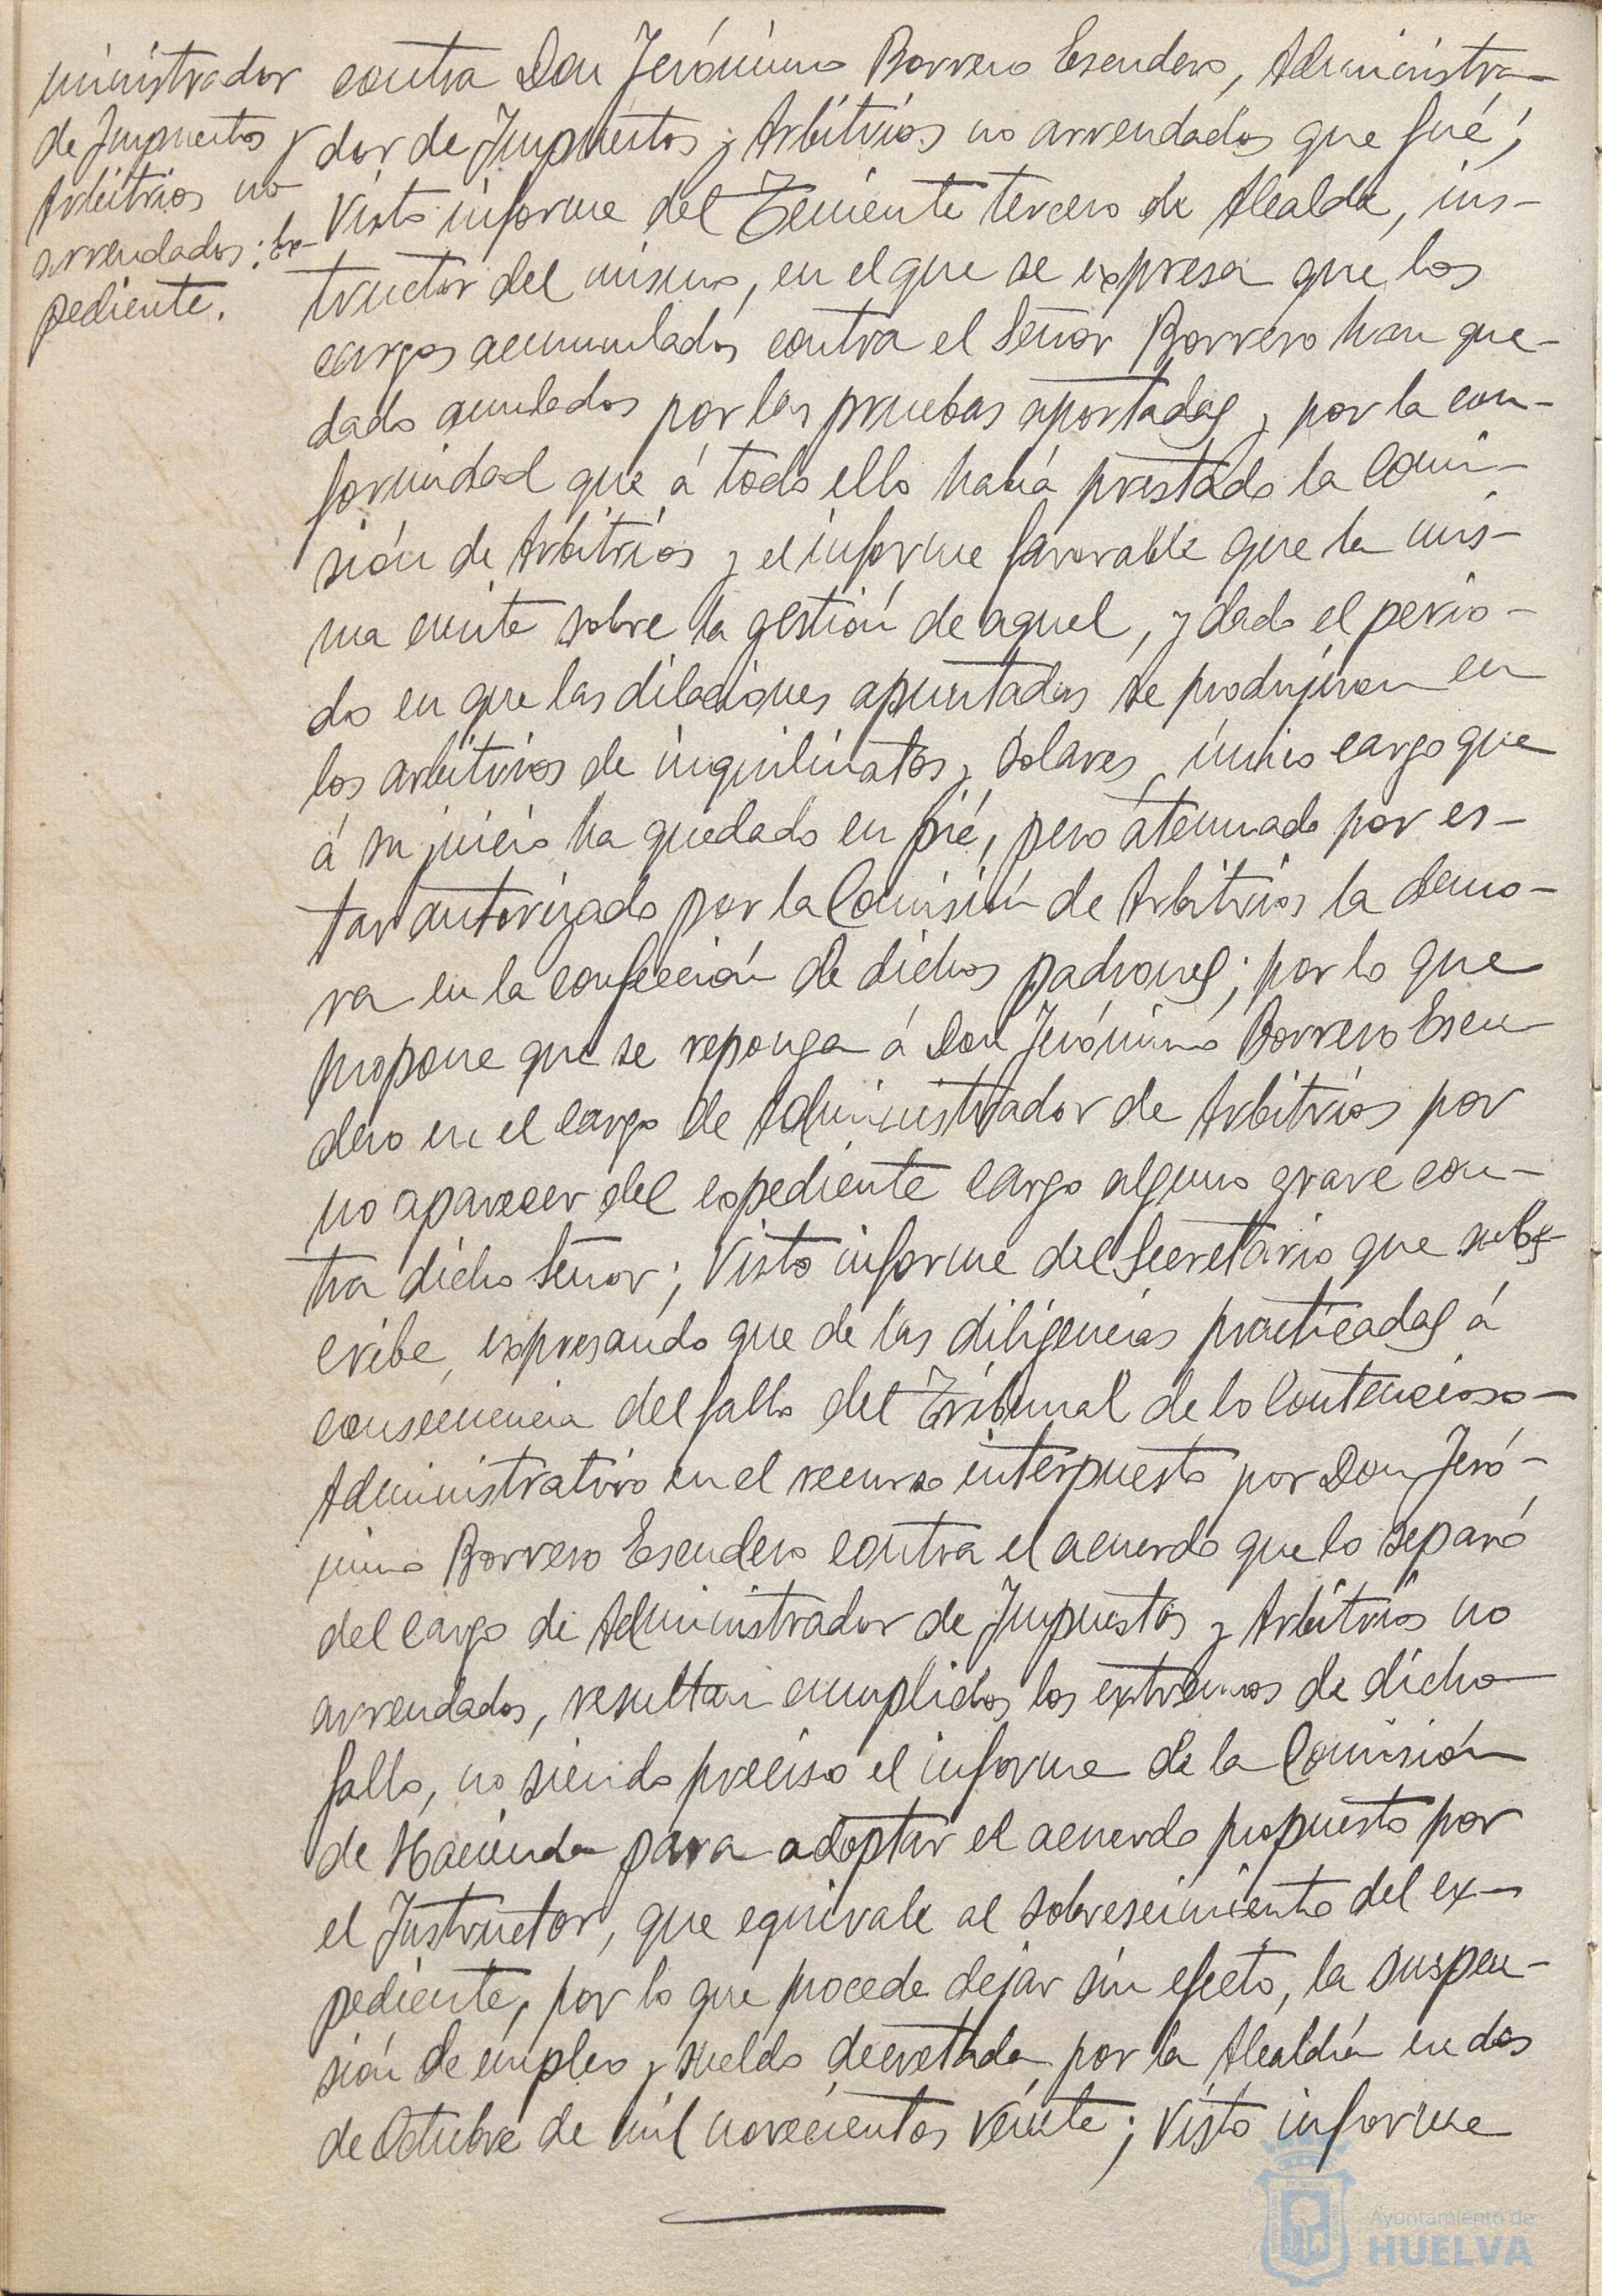 ministrador
de Impuestos y
Arbitrios no
arrendados: Ex-
pediente.
contra Don Jerónimo Borrero Escudero, Administra-
dor de Impuestos y Arbitrios no arrendados que fué;
Visto informe del Teniente tercero de Alcalde, ins-
tructor del mismo, en el que se expresa que los
cargos acumulados contra el Señor Borrero han que-
dado anulados por las pruebas aportadas y por la con-
formidad que á todo ello había prestado la Comi-
sión de Arbitrios y el informe favorable que la mis-
ma emite sobre la gestión de aquel, y dado el perio-
do en que las dilaciones apuntadas se produjeron en
los arbitrios de inquilinatos y solares, único cargo que
á su juicio ha quedado en pié, pero átenuado por es-
tar autorizado por la Comisión de Arbitrios la demo-
ra en la confección de dichos padrones; por lo que
propone que se reponga á Don Jerónimo Borrero Escu-
dero en el cargo de Administrador de Arbitrios por
no aparecer del expediente cargo alguno grave con-
tra dicho Señor; Visto informe del Secretario que subs-
cribe, expresando que de las diligencias practicadas á
consecuencia del fallo del Tribunal de lo Contencioso-
Administrativo en el recurso interpuesto por Don Jeró-
nimo Borrero Escudero contra el acuerdo que lo separó
del cargo de Administrador de Impuestos y Arbitrios no
arrendados, resultan cumplidos los extremos de dicho
fallo, no siendo preciso el informe de la Comisión
de Hacienda para adoptar el acuerdo propuesto por
el Instructor, que equivale al sobreseimiento del ex-
pediente, por lo que procede dejar sin efecto, la suspen-
sión de empleo y sueldo decretada por la Alcaldía en dos
de Octubre de mil novecientos veinte; Visto informe
Ayuntamiento de
HUELVA